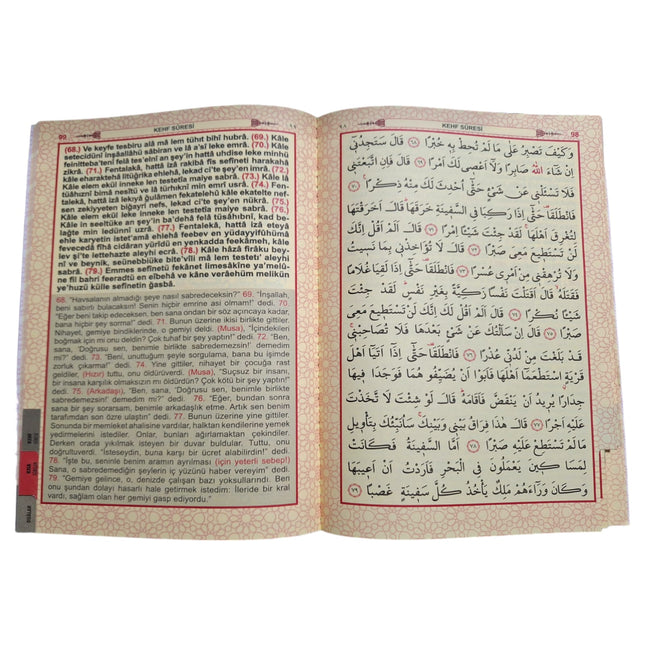 99
KEHF SÛRESİ
(68.) Ve keyfe tesbiru alâ mâ lem tühıt bihî hubrâ. (69.) Kâle
setecidünî inşaallâhü sâbiran ve lâ a'sî leke emrâ. (70.) Kâle
feinitteba'tenî felâ tes'elnî an şey'in hattâ uhdise leke minhü
zikrâ. (71.) Fentalekâ, hattâ izâ rakibâ fis sefîneti harakahâ
kâle eharaktehâ litüğrika ehlehâ, lekad ci'te şey'en imrâ. (72.)
Kâle elem ekül inneke len testetîa maiye sabrâ. (73.) Kâle lâ
tüâhıznî bimâ nesîtü ve lâ türhıknî min emrî usrâ. (74.) Fen-
talekâ, hattâ izâ lekıyâ ğulâmen fekatelehû kâle ekatelte nef-
sen zekiyyeten biğayri nefs, lekad ci'te şey'en nükrâ. (75.)
Kâle elem ekül leke inneke len testetîa maiye sabrâ. (76.)
Kâle in seeltüke an şey'in ba'dehâ felâ tüsâhıbnî, kad be-
lağte min ledünnî uzrâ. (77.) Fentalekâ, hattâ izâ eteyâ
ehle karyetin istet'amâ ehlehâ feebev en yüdayyifûhümâ
fevecedâ fîhâ cidâran yürîdü en yenkadda feekâmeh, kâle
lev şi'te lettehazte aleyhi ecrâ. (78.) Kâle hâzâ firâku bey-
nî ve beynik, seünebbiüke bite'vîli mâ lem testetı' aleyhi
sabrâ. (79.) Emmes sefînetü fekânet limesâkîne ya'melû-
ne fil bahri feeradtü en eîbehâ ve kâne verâehüm melikün
ye'huzü külle sefînetin ğasbâ.
68. "Havsalanın almadığı şeye nasıl sabredeceksin?" 69. "İnşallah,
beni sabırlı bulacaksın! Senin hiçbir emrine asi olmam!" dedi. 70.
"Eğer beni takip edeceksen, ben sana ondan bir söz açıncaya kadar,
bana hiçbir şey sorma!" dedi. 71. Bunun üzerine ikisi birlikte gittiler.
Nihayet, gemiye bindiklerinde, o gemiyi deldi. (Musa), "İçindekileri
boğmak için mi onu deldin? Çok tuhaf bir şey yaptın!" 72. "Ben,
sana, 'Doğrusu sen, benimle birlikte sabredemezsin!' demedim
mi?" dedi. 73. "Beni, unuttuğum şeyle sorgulama, bana bu işimde
zorluk çıkarma!" dedi. 74. Yine gittiler, nihayet bir çocuğa rast
geldiler, (Hızır) tuttu, onu öldürüverdi. (Musa), "Suçsuz bir insanı,
bir insana karşılık olmaksızın mı öldürdün? Çok kötü bir şey yaptın!"
dedi. 75. (Arkadaşı), "Ben, sana, 'Doğrusu sen, benimle birlikte
sabredemezsin!' demedim mi?" dedi. 76. "Eğer, bundan sonra
sana bir şey sorarsam, benimle arkadaşlık etme. Artık sen benim
tarafımdan son özre ulaştın!" dedi. 77. Bunun üzerine yine gittiler.
Sonunda bir memleket ahalisine vardılar, halktan kendilerine yemek
yedirmelerini istediler. Onlar, bunları ağırlamaktan çekindiler.
Derken orada yıkılmak isteyen bir duvar buldular. Tuttu, onu
doğrultuverdi. "İsteseydin, buna karşı bir ücret alabilirdin!" dedi.
78. "İşte bu, seninle benim aramın ayrılması (için yeterli sebep!)
Sana, o sabredemediğin şeylerin iç yüzünü haber vereyim!" dedi.
79. "Gemiye gelince, o, denizde çalışan bazı yoksullarındı. Ben
onu şundan dolayı hasarlı hale getirmek istedim: İleride bir kral
vardı, sağlam olan her gemiyi gasp ediyordu."
٩٨
KEHF SÛRESİ
98
وَكَيْفَ تَصْبِرُ عَلٰى مَا لَمْ تُحِطْ بِه۪ خُبْرًا ﴿٦٨﴾ قَالَ سَتَجِدُن۪ٓي
اِنْ شَٓاءَ اللّٰهُ صَابِرًا وَلَٓا اَعْص۪ي لَكَ اَمْرًا ﴿٦٩﴾ قَالَ فَاِنِ اتَّبَعْتَن۪ي
فَلَا تَسْـَٔلْن۪ي عَنْ شَيْءٍ حَتّٰٓى اُحْدِثَ لَكَ مِنْهُ ذِكْرًا ﴿٧٠﴾
فَانْطَلَقَا حَتّٰٓى اِذَا رَكِبَا فِي السَّف۪ينَةِ خَرَقَهَا قَالَ اَخَرَقْتَهَا
لِتُغْرِقَ اَهْلَهَا لَقَدْ جِئْتَ شَيْـًٔا اِمْرًا ﴿٧١﴾ قَالَ اَلَمْ اَقُلْ اِنَّكَ
لَنْ تَسْتَط۪يعَ مَعِيَ صَبْرًا ﴿٧٢﴾ قَالَ لَا تُؤَاخِذْن۪ي بِمَا نَس۪يتُ
وَلَا تُرْهِقْن۪ي مِنْ اَمْر۪ي عُسْرًا ﴿٧٣﴾ فَانْطَلَقَا حَتّٰٓى اِذَا لَقِيَا غُلَامًا
فَقَتَلَهُ قَالَ اَقَتَلْتَ نَفْسًا زَكِيَّةً بِغَيْرِ نَفْسٍ لَقَدْ جِئْتَ
شَيْـًٔا نُكْرًا ﴿٧٤﴾ قَالَ اَلَمْ اَقُلْ لَكَ اِنَّكَ لَنْ تَسْتَط۪يعَ مَعِيَ
صَبْرًا ﴿٧٥﴾ قَالَ اِنْ سَاَلْتُكَ عَنْ شَيْءٍ بَعْدَهَا فَلَا تُصَاحِبْن۪ي
قَدْ بَلَغْتَ مِنْ لَدُنّ۪ي عُذْرًا ﴿٧٦﴾ فَانْطَلَقَا حَتّٰٓى اِذَٓا اَتَيَٓا اَهْلَ
قَرْيَةٍ اسْتَطْعَمَٓا اَهْلَهَا فَاَبَوْا اَنْ يُضَيِّفُوهُمَا فَوَجَدَا ف۪يهَا
جِدَارًا يُر۪يدُ اَنْ يَنْقَضَّ فَاَقَامَهُ قَالَ لَوْ شِئْتَ لَتَّخَذْتَ
عَلَيْهِ اَجْرًا ﴿٧٧﴾ قَالَ هٰذَا فِرَاقُ بَيْن۪ي وَبَيْنِكَ سَاُنَبِّئُكَ بِتَأْو۪يلِ
مَا لَمْ تَسْتَطِعْ عَلَيْهِ صَبْرًا ﴿٧٨﴾ اَمَّا السَّف۪ينَةُ فَكَانَتْ
لِمَسَاك۪ينَ يَعْمَلُونَ فِي الْبَحْرِ فَاَرَدْتُ اَنْ اَع۪يبَهَا
وَكَانَ وَرَٓاءَهُمْ مَلِكٌ يَأْخُذُ كُلَّ سَف۪ينَةٍ غَصْبًا ﴿٧٩﴾